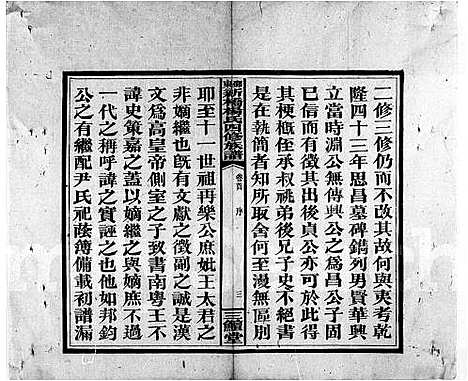 二修三修仍而不改其故何與夷考乾
隆四十三年思昌墓碑鐫列男賢華興
立當時淵公無傳興公之爲昌公子固
已信而有徵其出後貞公亦可於此得
其梗槪侄承叔祧弟後兄子史不絕書
是在簡者知所取舍何至漫無區別
新橋楊氏四修族譜
卷首
序
三
三鱣堂
耶至十一世祖再樂公庶妣王太君之
非嫡繼也旣有文獻之徵副之誠是漢
文爲高皇帝側室之子致書南粤王不
諱史策嘉之蓋以嫡繼之與嫡庶不過
一代之稱呼諱之實誣之也他如邦鈞
公之有繼配尹氏祀蔭簿備載初譜漏